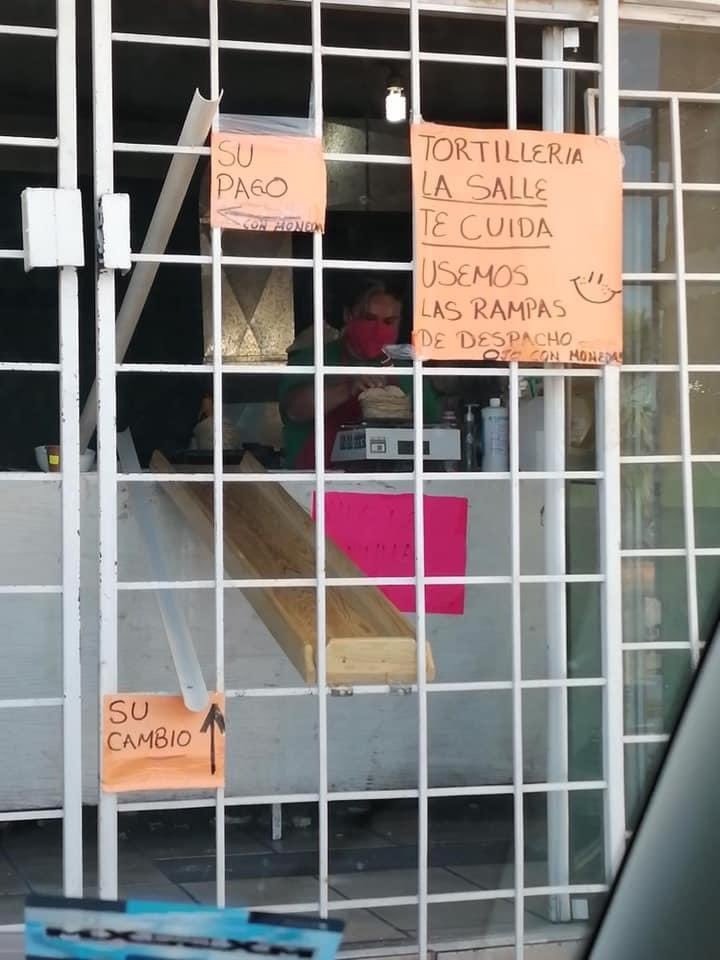 SU
PAGO
CON MONEDA
TORTILLERIA
LA SALLE
TE CUIDA
USEMOS
LAS RAMPAS
DE DESPACHO
OJO CON MONEDAS
SU
CAMBIO